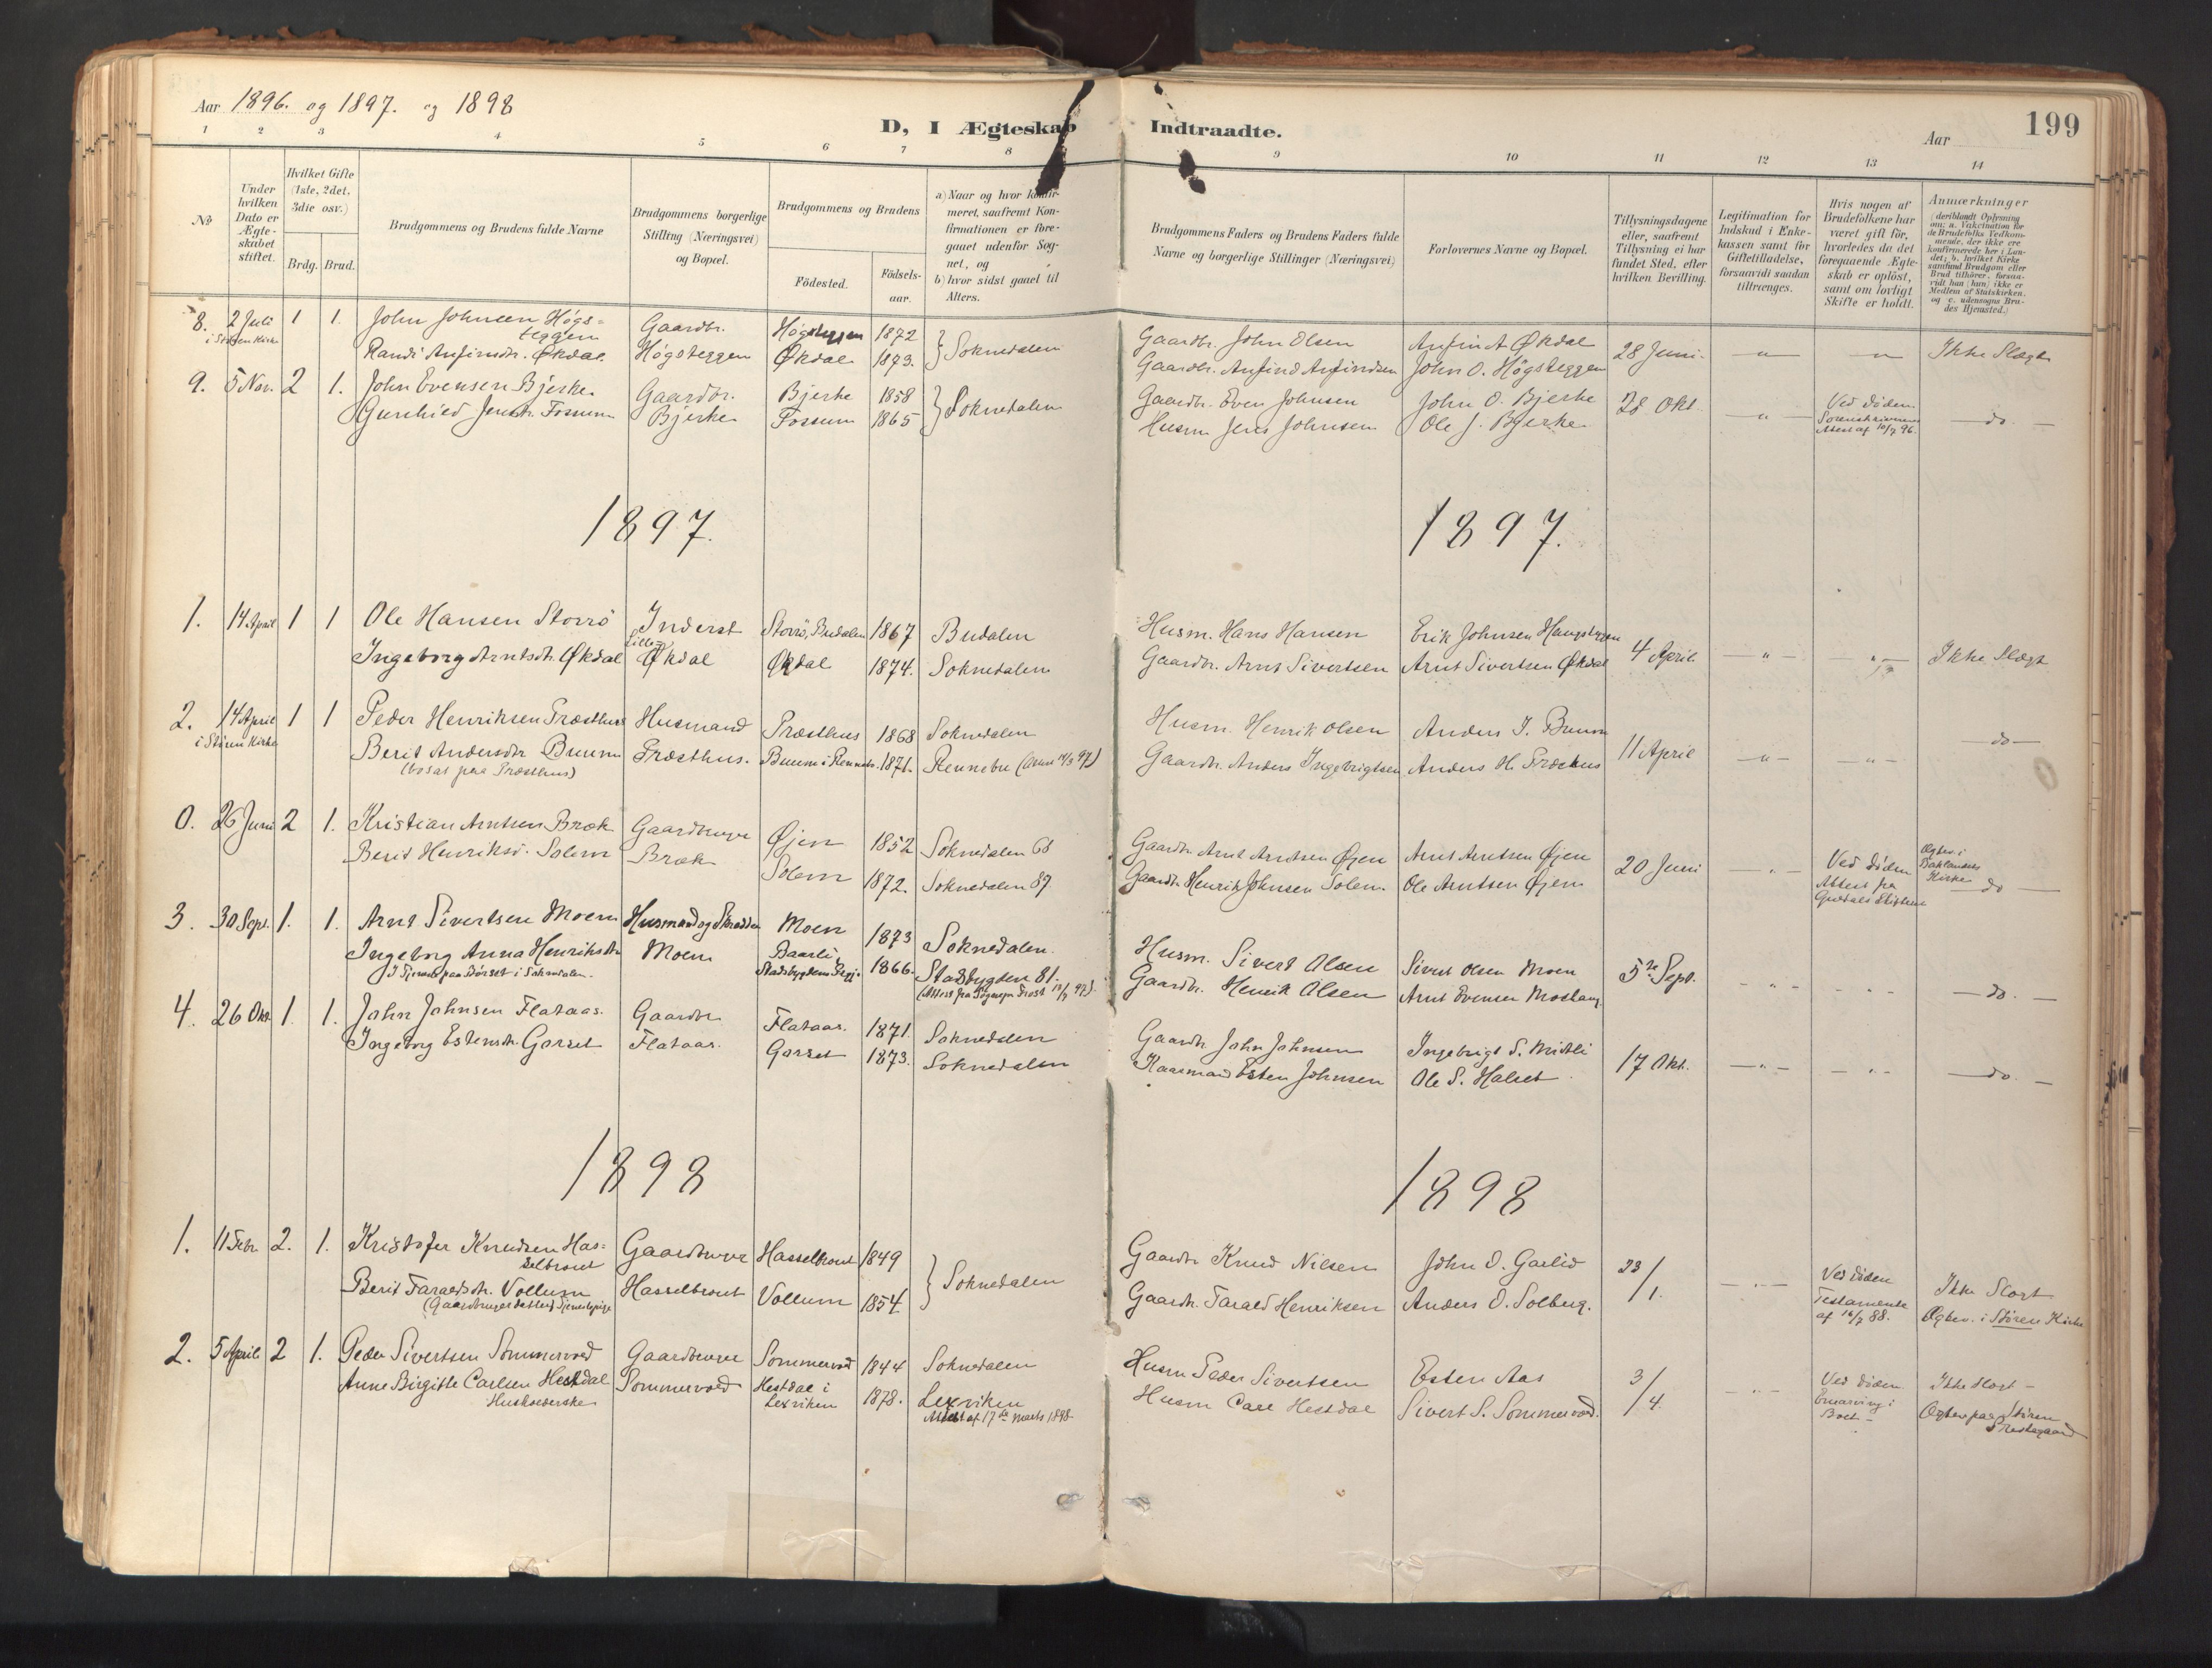 Aar 1896. og 1897. og 1898
D, I Ægteskab Indtraadte.
Aar
199
1 2 3 4 5 6 7 8 9 10 11 12 13 14
No
Under hvilken Dato er Ægteskabet stiftet.
Hvilket Gifte (1ste, 2det, 3die osv.)
Brdg. Brud.
Brudgommens og Brudens fulde Navne
Brudgommens borgerlige Stilling (Næringsvei) og Bopæl.
Brudgommens og Brudens
Fødested.
Fødsels-aar.
a) Naar og hvor konfirmeret, saafremt Konfirmationen er foregaaet udenfor Sognet, og
b) hvor sidst gaaet til Alters.
Brudgommens Faders og Brudens Faders fulde Navne og borgerlige Stillinger (Næringsvei)
Forlovernes Navne og Bopæl.
Tillysningsdagene eller, saafremt Tillysning ei har fundet Sted, efter hvilken Bevilling.
Legitimation for Indskud i Enkekassen samt for Giftetilladelse, forsaavidt saadan tiltrænges.
Hvis nogen af Brudefolkene har været gift før, hvorledes da det foregaaende Ægteskab er opløst, samt om lovligt Skifte er holdt.
Anmærkninger (deriblandt Oplysning om: a. Vakcination for de Brudefolks Vedkommende, der ikke ere konfirmerede her i Landet; b. hvilket Kirkesamfund Brudgom eller Brud tilhører, forsaavidt han (hun) ikke er Medlem af Statskirken, og c. udensogns Brudes Hjemsted.)
8. 2 Juli 1 1. John Johnsen Högs= Gaardbr. Högsteggen 1872 Soknedalen Gaardbr. John Olsen Anfind Økdal 28 Juni. " " Ikke Slægt
i Støren Kirke teggen
Randi Anfinsdtr. Økdal Högsteggen Økdal 1873. Gaardbr. Anfind Anfindsen John O. Högsteggen
9. 5 Nov. 2 1. John Evensen Bjerke Gaardbr. Bjerke 1858 Soknedalen Gaardbr. Even Johnsen John O. Bjerke 28 Okt. " Ved Døden do.
Gunhild Jensdtr. Fossum Bjerke Fossum 1865 Husm. Jens Johnsen Ole J. Bjerke Sorenskriverens Attest af 10/7 96.
1897. 1897.
1. 14 April 1 1 Ole Hansen Storrö Inderst Storrö, Budalen 1867 Budalen Husm. Hans Hansen Erik Johnsen
Ingeborg Arntsdtr. Økdal Lille Økdal Økdal 1874. Soknedalen Gaardbr. Arnt Sivertsen Arnt Sivertsen Økdal 4 April. " " Ikke Slægt
2. 14 April 1 1 Peder Henriksen Præsthus Husmand Præsthus 1868 Soknedalen Husm. Henrik Olsen Anders I. Buum
i Støren Kirke Berit Andersdtr Buum Præsthus. Buum i Rennebu. 1871. Rennebu Gaardbr. Anders Ingebrigtsen Anders H. Præsthus 11 April " " do
(bosat paa Præsthus)
0. 26 Juni 2 1. Kristian Arntsen Bræk Gaardbruger Øjen 1852 Soknedalen 68 Gaardbr. Arnt Arntsen Øjen Arnt Arntsen Øjen 20 Juni " Ved Døden Ægtev. i Baklandets Kirke
Berit Henriksd. Solem Bræk Solem 1872. Soknedalen 87 Gaardbr. Henrik Johnsen Solem. Ole Arntsen Øjen Attest fra do
3. 30 Sept. 1. 1. Arnt Sivertsen Moen Husmand og Skrædder Moen 1873 Soknedalen. Husm. Sivert Olsen Sivert Olsen Moen 5te Sept. " " do.
Ingeborg Anna Henriksdtr Moen Baarli, Stadsbygdens Prgj. 1866. Stadsbygden 81. Gaardbr. Henrik Olsen Arnt Evensen
I Tjeneste paa Börset i Soknedalen.
4. 26 Okt. 1 1. John Johnsen Flataas. Gaardbr. Flataas. 1871. Soknedalen Gaardbr. John Johnsen Ingebrigt S. Midtli 17 Okt. " " do.
Ingeborg Estensdtr. Garset Flataas. Garset 1873. Soknedalen Kaarmand Esten Johnsen Ole S. Halset
1898 1898
1. 11 Febr. 2. 1. Kristofer Knudsen Has= Gaardbruger Hasselbrout 1849 Soknedalen Gaardbr. Knud Nilsen John O. Garlid 23/1. " Ved Døden Ikke Slægt
selbrout
Berit Faraldsdtr. Vollum Hasselbrout Vollum 1854. Gaardbr. Farald Henriksen Anders O. Solberg. Testamente af 16/7 88. Ægtev. i Støren Kirke
(Gaardbrugerdatter) Tjenestepige
2. 5 April 2 1. Peder Sivertsen Sommervold Gaardbruger Sommervold 1844 Soknedalen Husm Peder Sivertsen Esten Aas 3/4. " Ved Døden Ikke Slægt
Anne Birgitte Carlsen Hestdal Sommervold Hestdal i Lexviken 1878. Lexviken Husm Carl Hestdal Sivert S. Sommervold. Enearving i Boet Ægtev. paa Støren Prestegaard
Husholderske Attest af 17de Marts 1898